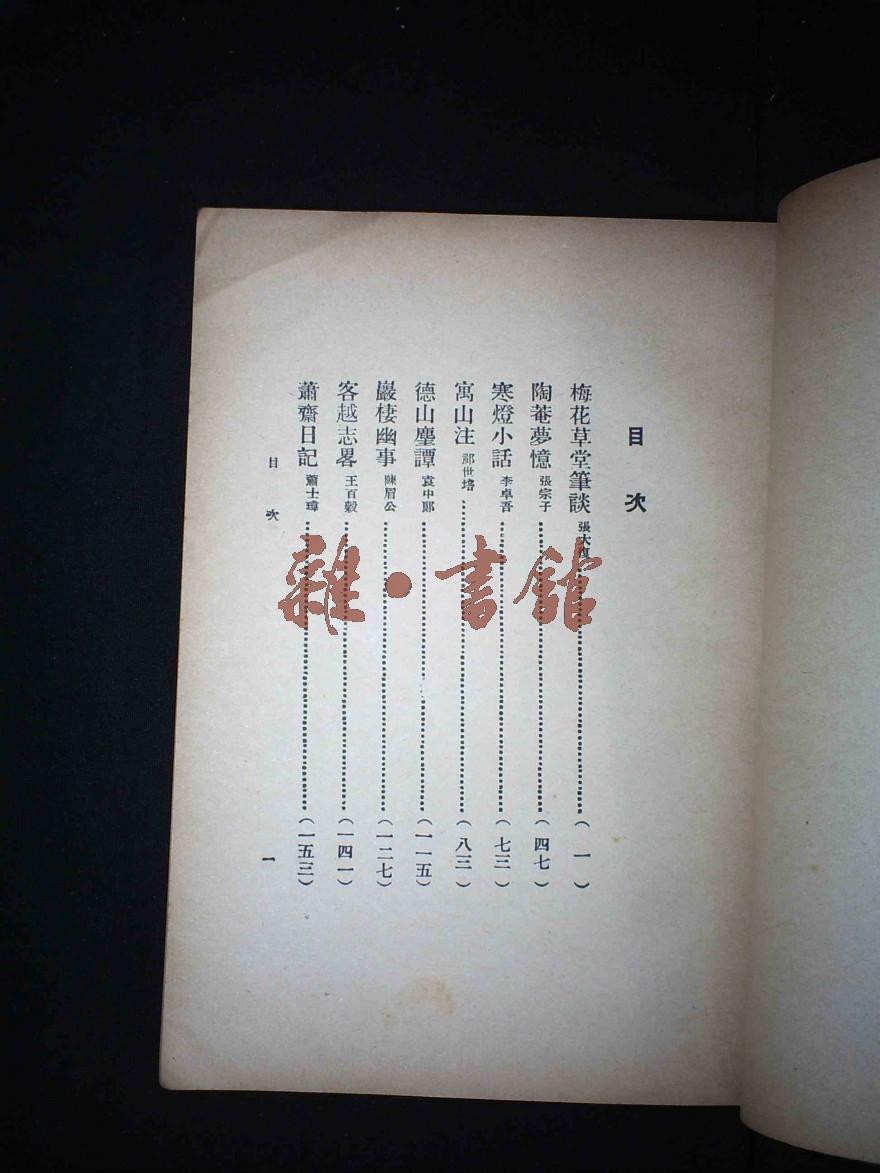 目次
梅花草堂筆談 張大復 (一)
陶菴夢憶 張宗子 (四七)
寒燈小話 李卓吾 (七三)
寓山注 祁世培 (八三)
德山麈譚 袁中郎 (一一五)
巖棲幽事 陳眉公 (一二七)
客越志畧 王百穀 (一四一)
蕭齋日記 蕭士瑋 (一五三)
目次
一
雜·書館